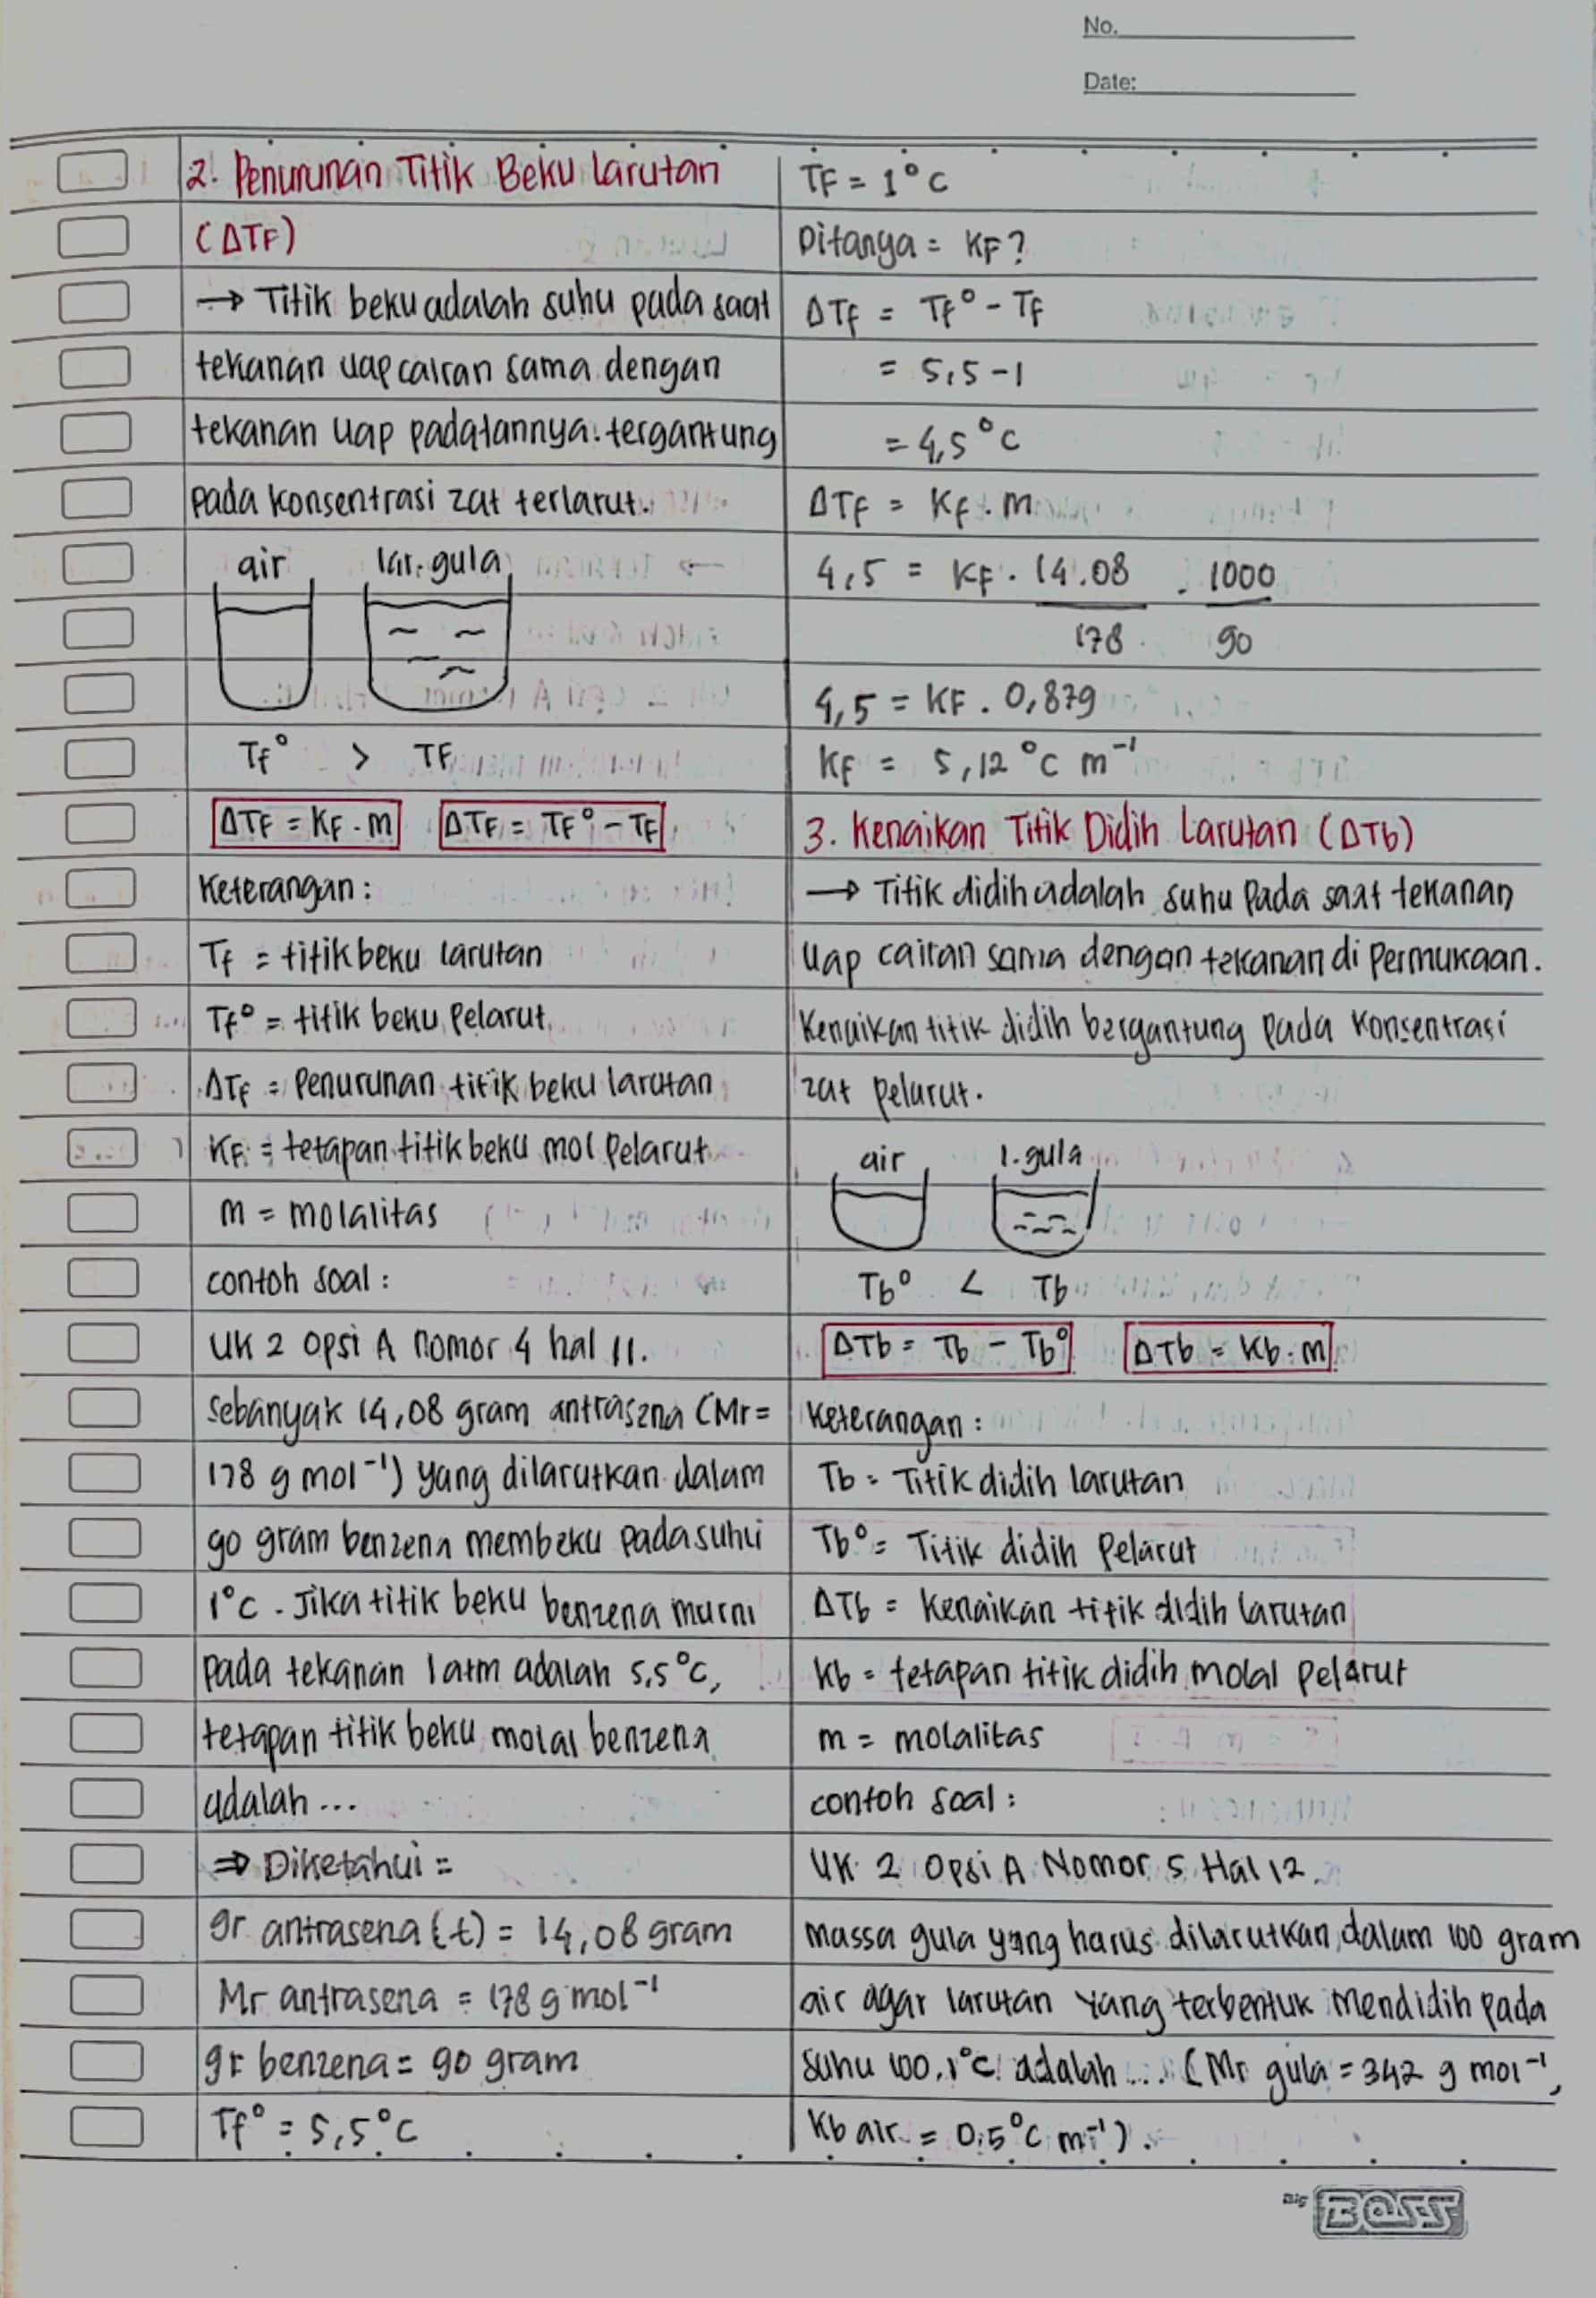 No.
Date:
2. Penurunan Titik Beku Larutan
(ΔTF)
→ Titik beku adalah suhu pada saat
tekanan uap cairan sama dengan
tekanan uap padatannya. tergantung
pada konsentrasi zat terlarut.
air lar. gula
Tf° > TF
ΔTF = KF . m ΔTF = TF° - TF
Keterangan :
Tf = titik beku larutan
Tf° = titik beku Pelarut
ΔTF = Penurunan titik beku larutan
KF = tetapan titik beku mol Pelarut
m = molalitas
contoh soal :
UK 2 opsi A nomor 4 hal 11.
Sebanyak 14,08 gram antrasena (Mr =
178 g mol⁻¹) yang dilarutkan dalam
90 gram benzena membeku pada suhu
1°C . Jika titik beku benzena murni
pada tekanan 1 atm adalah 5,5°C,
tetapan titik beku molal benzena
adalah ...
⇒ Diketahui =
gr antrasena (t) = 14,08 gram
Mr antrasena = 178 g mol⁻¹
gr benzena = 90 gram
Tf° = 5,5°C
TF = 1°C
Ditanya = KF ?
ΔTf = Tf° - Tf
= 5,5 - 1
= 4,5°C
ΔTF = KF . m
4,5 = KF . 14.08 . 1000
178 90
4,5 = KF . 0,879
KF = 5,12 °C m⁻¹
3. Kenaikan Titik Didih Larutan (ΔTb)
→ Titik didih adalah suhu Pada saat tekanan
uap cairan sama dengan tekanan di Permukaan.
Kenaikan titik didih bergantung pada Konsentrasi
zat pelarut.
air l. gula
Tb° < Tb
ΔTb = Tb - Tb° ΔTb = Kb . m
Keterangan :
Tb = Titik didih larutan
Tb° = Titik didih Pelarut
ΔTb = Kenaikan titik didih larutan
Kb = tetapan titik didih molal Pelarut
m = molalitas
contoh soal :
UK 2 Opsi A Nomor 5 Hal 12.
Massa gula yang harus dilarutkan dalam 100 gram
air agar larutan yang terbentuk mendidih pada
suhu 100,1°C adalah ... (Mr gula = 342 g mol⁻¹,
Kb air = 0,5°C m⁻¹) .
Big BOSS